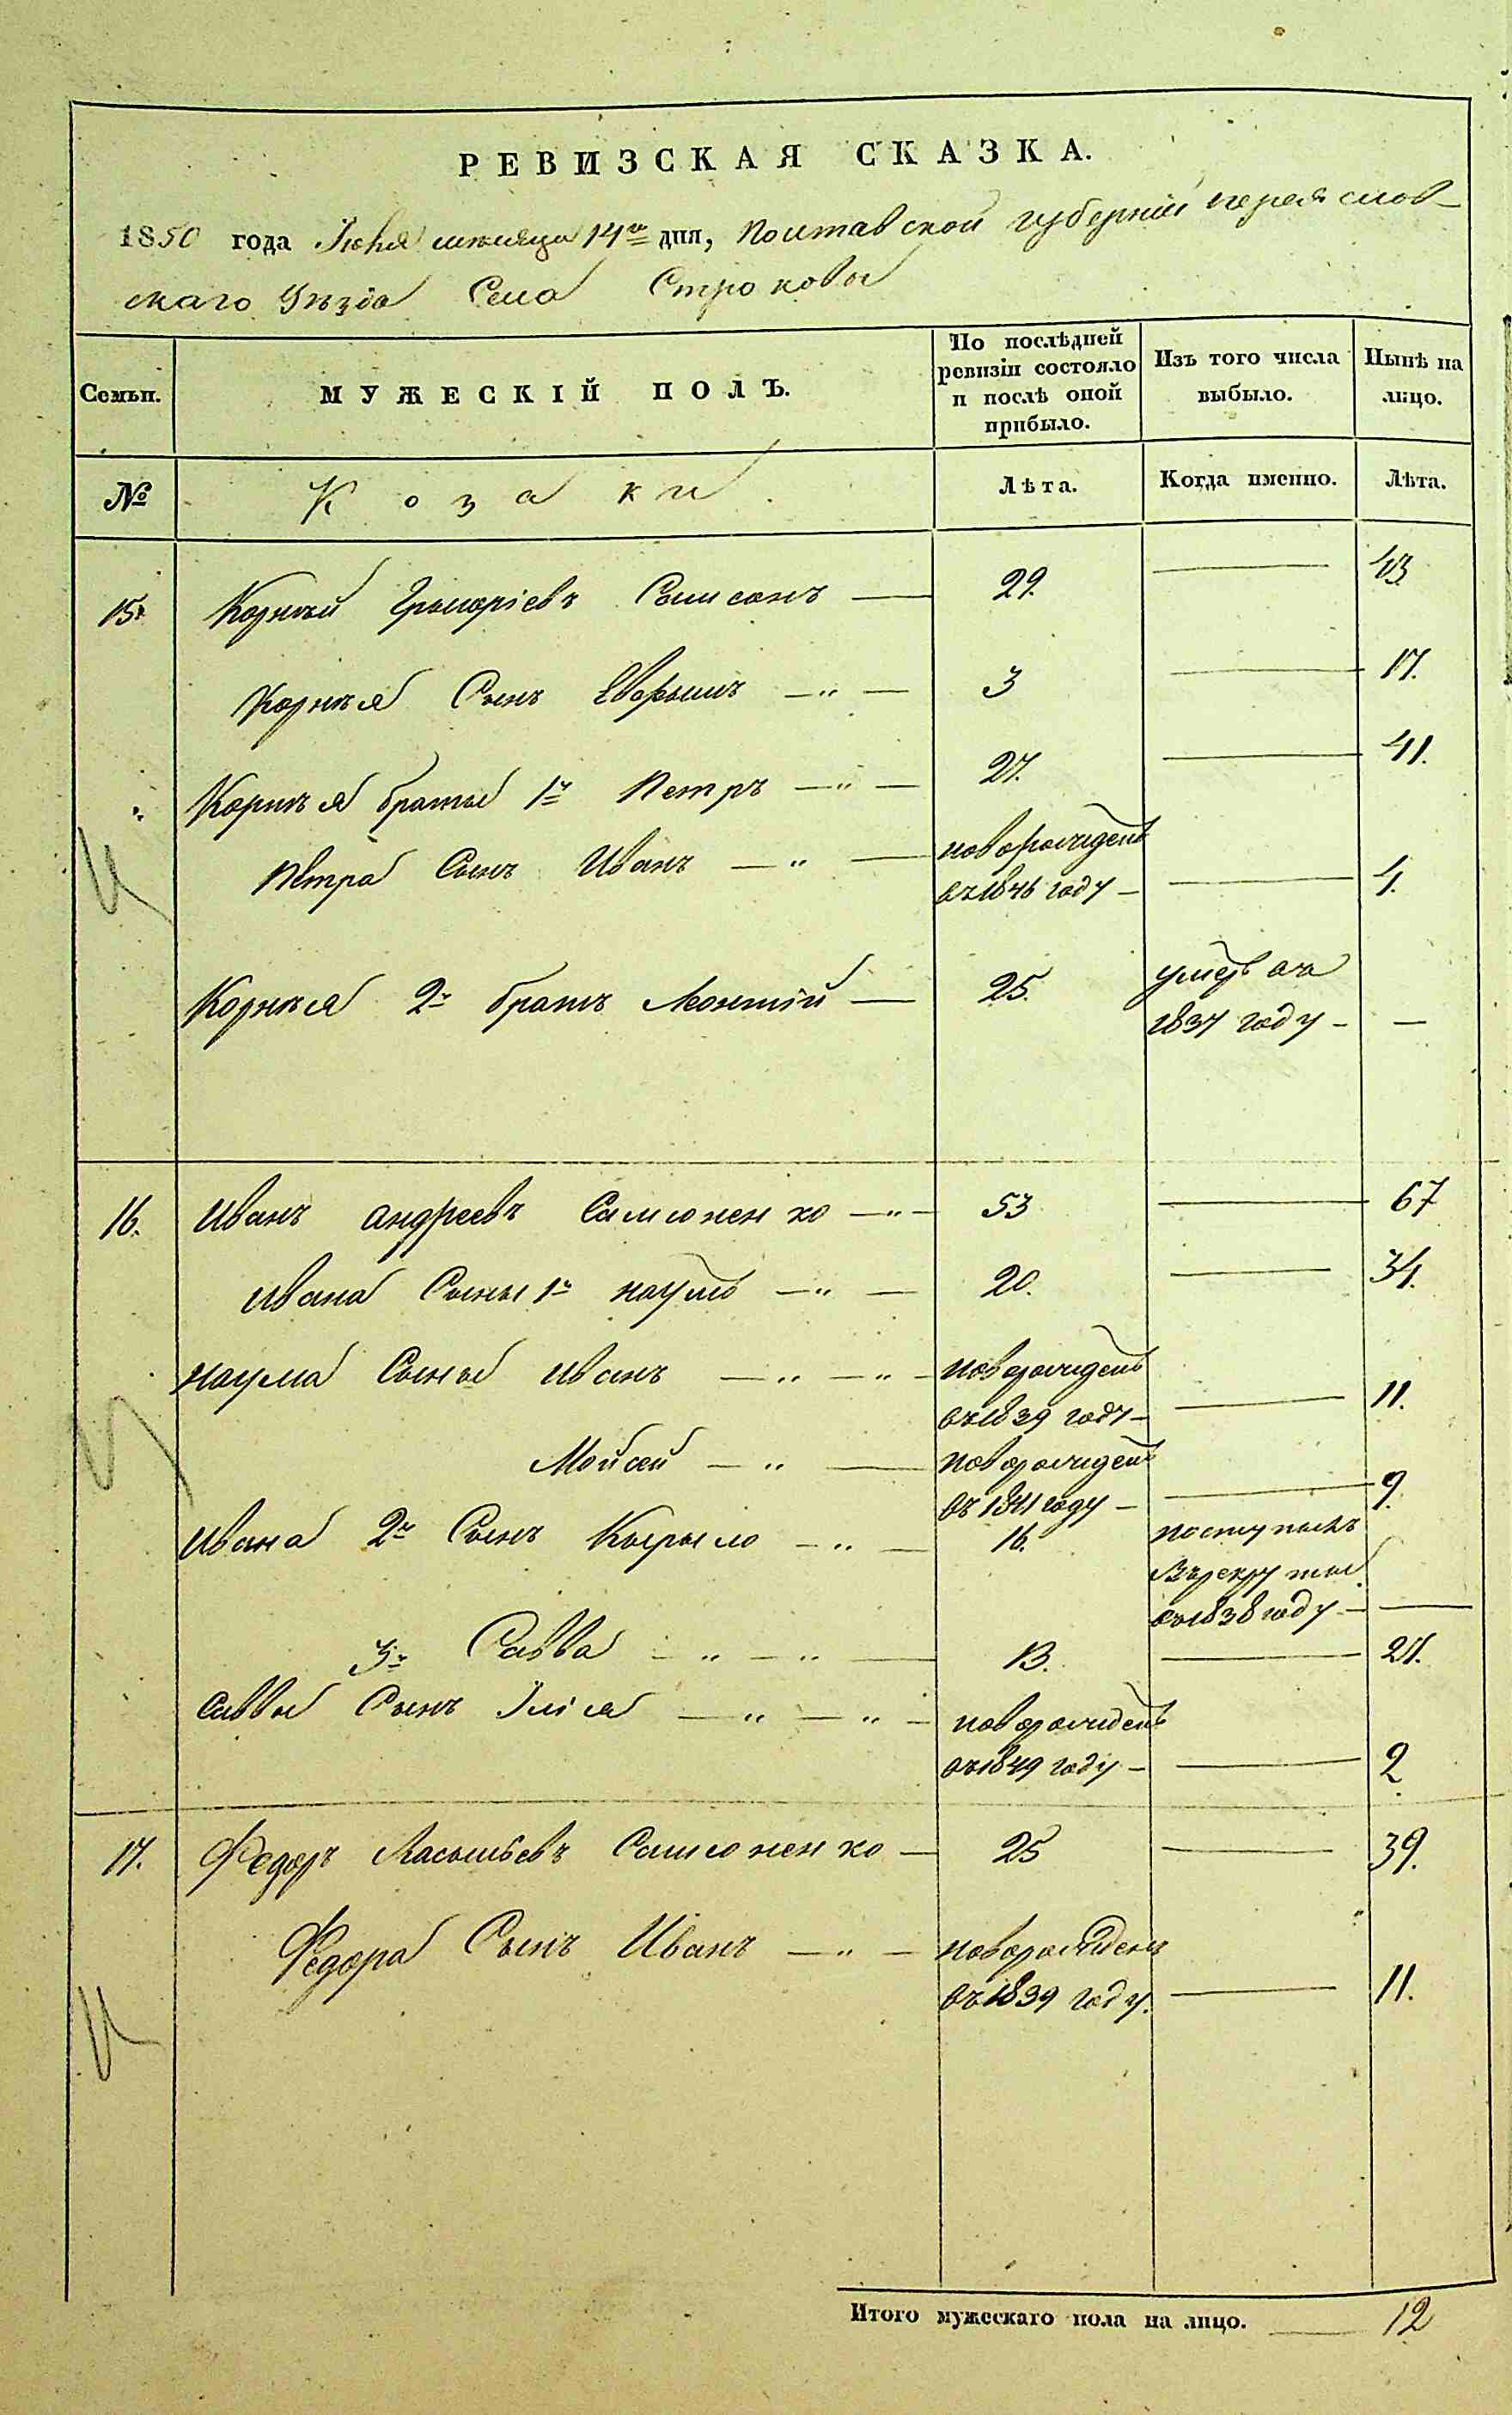 РЕВИЗСКАЯ СКАЗКА.
1850 года Іюня мѣсяца 14го дня, Полтавской губерніи переяслов-
скаго Уѣзда Села Строковы
Семьи. МУЖЕСКІЙ ПОЛЪ. По послѣдней ревизіи состояло и послѣ оной прибыло. Изъ того числа выбыло. Нынѣ на лицо.
№ Козаки Лѣта. Когда именно. Лѣта.
15. Корнѣй Григоріевъ Самсонъ — 29. — 43
Корнѣя Сынъ Евфымъ —„— 3 — 17.
Корнѣя братья 1й Петръ —„— 27. — 41.
Петра Сынъ Иванъ —„— новорожденъ
въ 1846 году — — 4.
Корнѣя 2й братъ Леонтій — 25. умеръ въ
1837 году — —
16. Иванъ Андреевъ Самсоненко —„— 53 — 67
Ивана Сыны 1й Наумъ —„— 20. — 34.
Наума Сыны Иванъ —„—„— новорожденъ
въ 1839 году — — 11.
Мойсей —„— новорожденъ
въ 1841 году — — 9.
Ивана 2й Сынъ Кырыло —„— 16. поступилъ
въ рекруты
въ 1838 году — —
3й Савва —„—„— 13. — 27.
Саввы Сынъ Ілія —„—„— новорожденъ
въ 1849 году — — 2
17. Федоръ Васыльевъ Самсоненко — 25 — 39.
Федора Сынъ Иванъ —„— новорожденъ
въ 1839 году. — 11.
Итого мужескаго пола на лицо. — 12